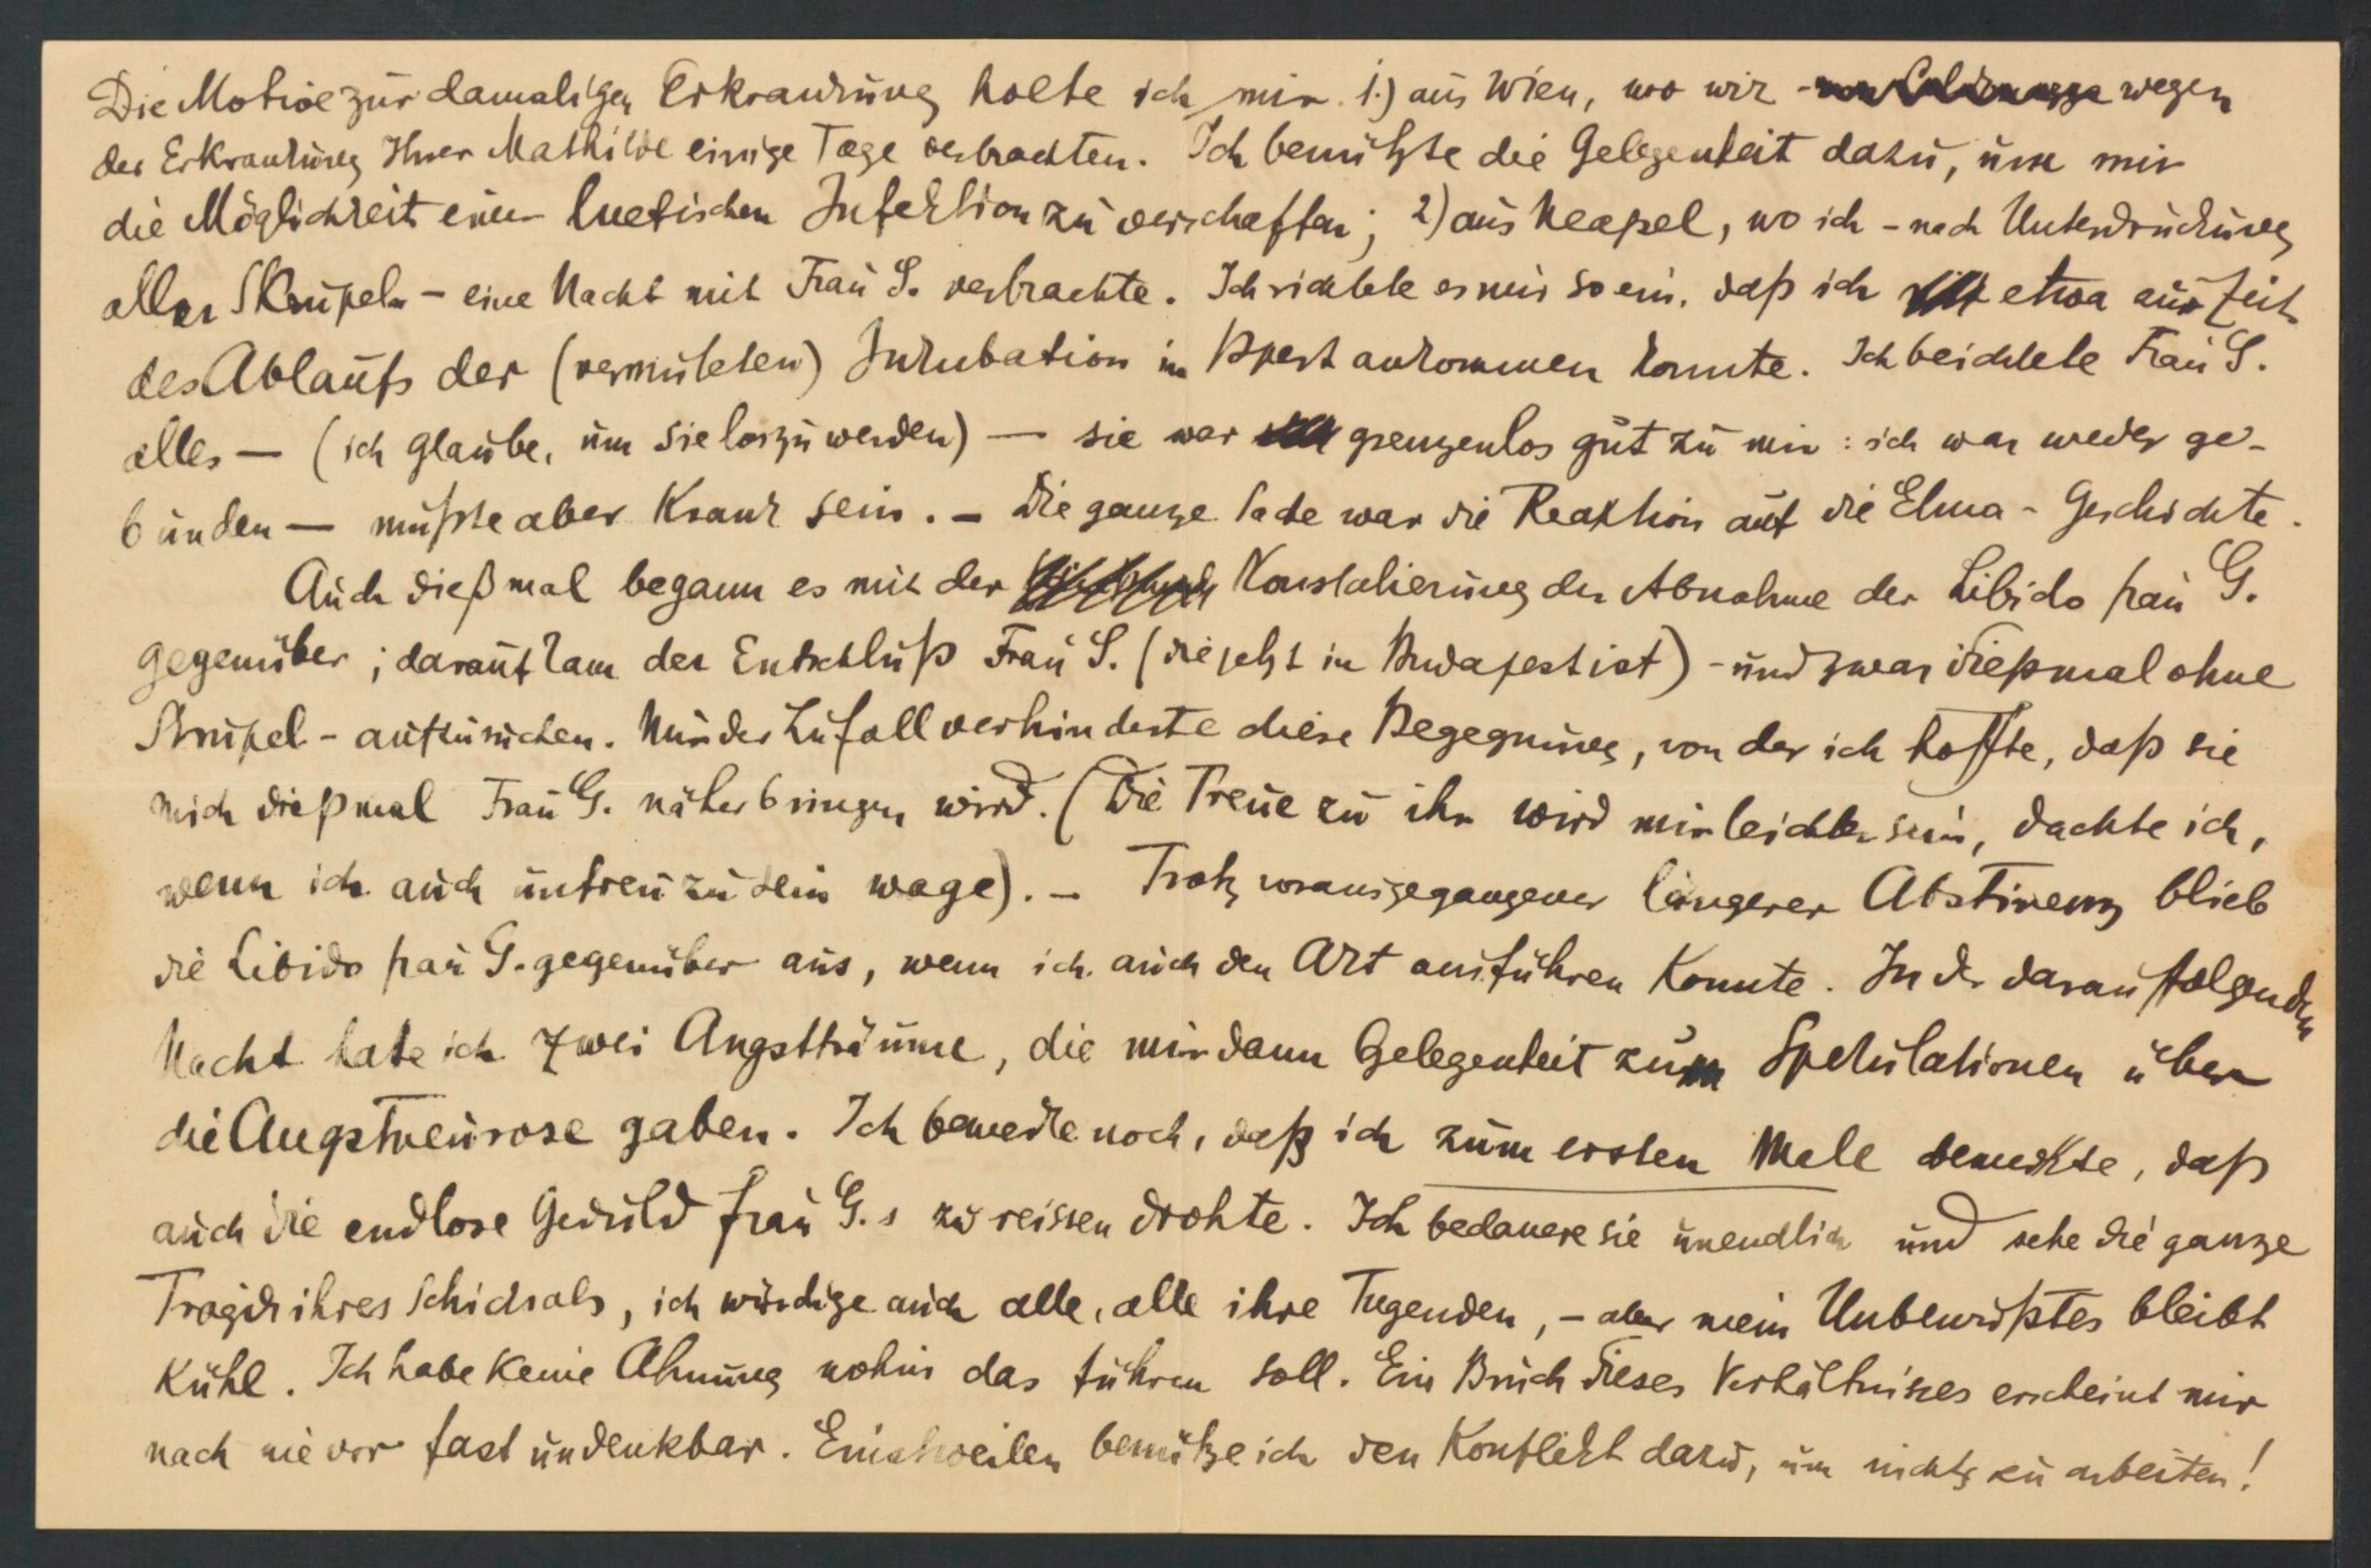 Die Motive zur damaligen Erkrankung holte ich mir 1.) aus Wien, wo wir - wegen
der Erkrankung Ihrer Mathilde einige Tage verbrachten. Ich benützte die Gelegenheit dazu, um mir
die Möglichkeit einer luetischen Infektion zu verschaffen; 2) aus Neapel, wo ich - nach Unterdrückung
aller Skrupeln - eine Nacht mit Frau S. verbrachte. Ich richtete es mir so ein, daß ich etwa zur Zeit
des Ablaufs der (vermuteten) Inkubation in Bpest ankommen konnte. Ich beichtete Frau S.
alles — (ich glaube, um sie loszuwerden) — sie war grenzenlos gut zu mir: ich war weder ge-
bunden — mußte aber krank sein. - Die ganze Sache war die Reaktion auf die Elma-Geschichte.
Auch dießmal begann es mit der Konstatierung der Abnahme der Libido frau G.
gegenüber; darauf kam der Entschluß Frau S. (die jetzt in Budapest ist) - und zwar dießmal ohne
Skrupel - aufzusuchen. Nur der Zufall verhinderte diese Begegnung, von der ich hoffte, daß sie
mich dießmal Frau G. näher bringen wird. (Die Treue zu ihr wird mir leichter sein, dachte ich,
wenn ich auch untreu zu sein wage). - Trotz vorausgegangener längerer Abstinenz blieb
die Libido frau G. gegenüber aus, wenn ich auch den Akt ausführen konnte. In der darauffolgenden
Nacht hatte ich zwei Angstträume, die mir dann Gelegenheit zu Spekulationen über
die Angstneurose gaben. Ich bemerke noch, daß ich zum ersten Male bemerkte, daß
auch die endlose Geduld frau G.s zu reissen drohte. Ich bedauere sie unendlich und sehe die ganze
Tragik ihres Schicksals, ich würdige auch alle, alle ihre Tugenden, - aber mein Unbewußtes bleibt
kühl. Ich habe keine Ahnung wohin das führen soll. Ein Bruch dieses Verhältnisses erscheint mir
nach wie vor fast undenkbar. Einstweilen benütze ich den Konflikt dazu, um nichts zu arbeiten!